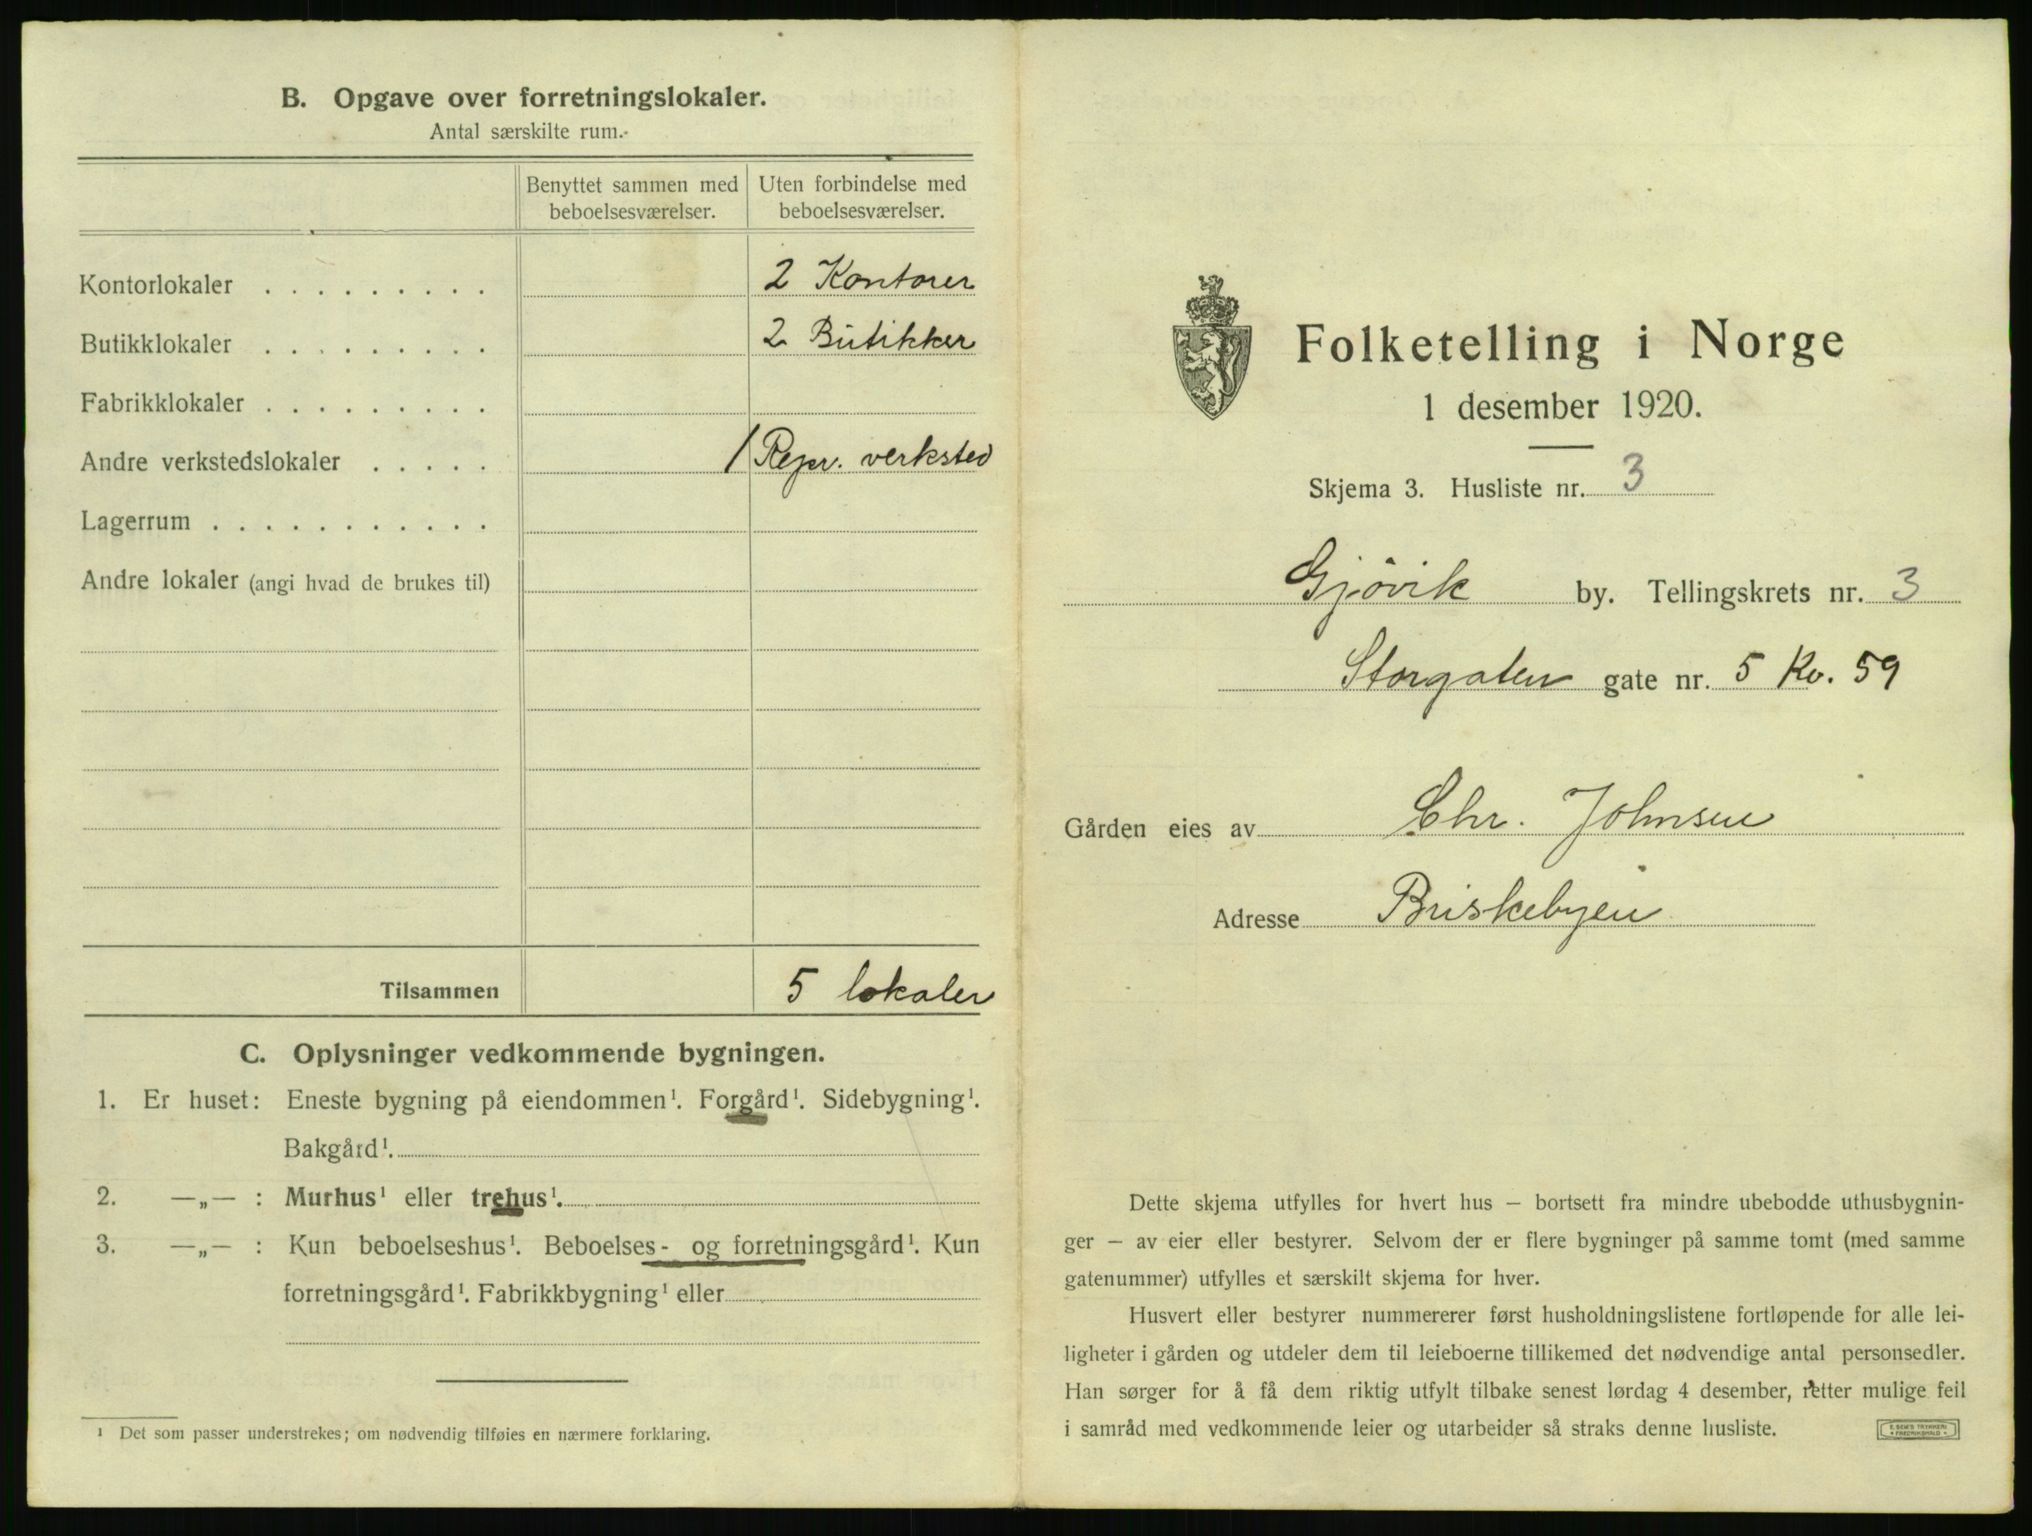 B. Opgave over forretningslokaler.
Antal særskilte rum.
Benyttet sammen med beboelsesværelser.
Uten forbindelse med beboelsesværelser.
Kontorlokaler . . . . . . . . . 2 Kontorer
Butikklokaler . . . . . . . . . 2 Butikker
Fabrikklokaler . . . . . . . . .
Andre verkstedslokaler . . . . . 1 Repr. verksted
Lagerrum . . . . . . . . . . . .
Andre lokaler (angi hvad de brukes til)
Tilsammen 5 lokaler
C. Oplysninger vedkommende bygningen.
1. Er huset: Eneste bygning på eiendommen¹. Forgård¹. Sidebygning¹.
Bakgård¹.
2. —„— : Murhus¹ eller trehus¹.
3. —„— : Kun beboelseshus¹. Beboelses- og forretningsgård¹. Kun
forretningsgård¹. Fabrikkbygning¹ eller
¹ Det som passer understrekes; om nødvendig tilføies en nærmere forklaring.
Folketelling i Norge
1 desember 1920.
Skjema 3. Husliste nr. 3
Gjövik by. Tellingskrets nr. 3
Storgaten gate nr. 5 Kv. 59
Gården eies av Chr. Johnsen
Adresse Briskebyen
Dette skjema utfylles for hvert hus – bortsett fra mindre ubebodde uthusbygnin-
ger – av eier eller bestyrer. Selvom der er flere bygninger på samme tomt (med samme
gatenummer) utfylles et særskilt skjema for hver.
Husvert eller bestyrer nummererer først husholdningslistene fortløpende for alle lei-
ligheter i gården og utdeler dem til leieboerne tillikemed det nødvendige antal personsedler.
Han sørger for å få dem riktig utfylt tilbake senest lørdag 4 desember, retter mulige feil
i samråd med vedkommende leier og utarbeider så straks denne husliste.